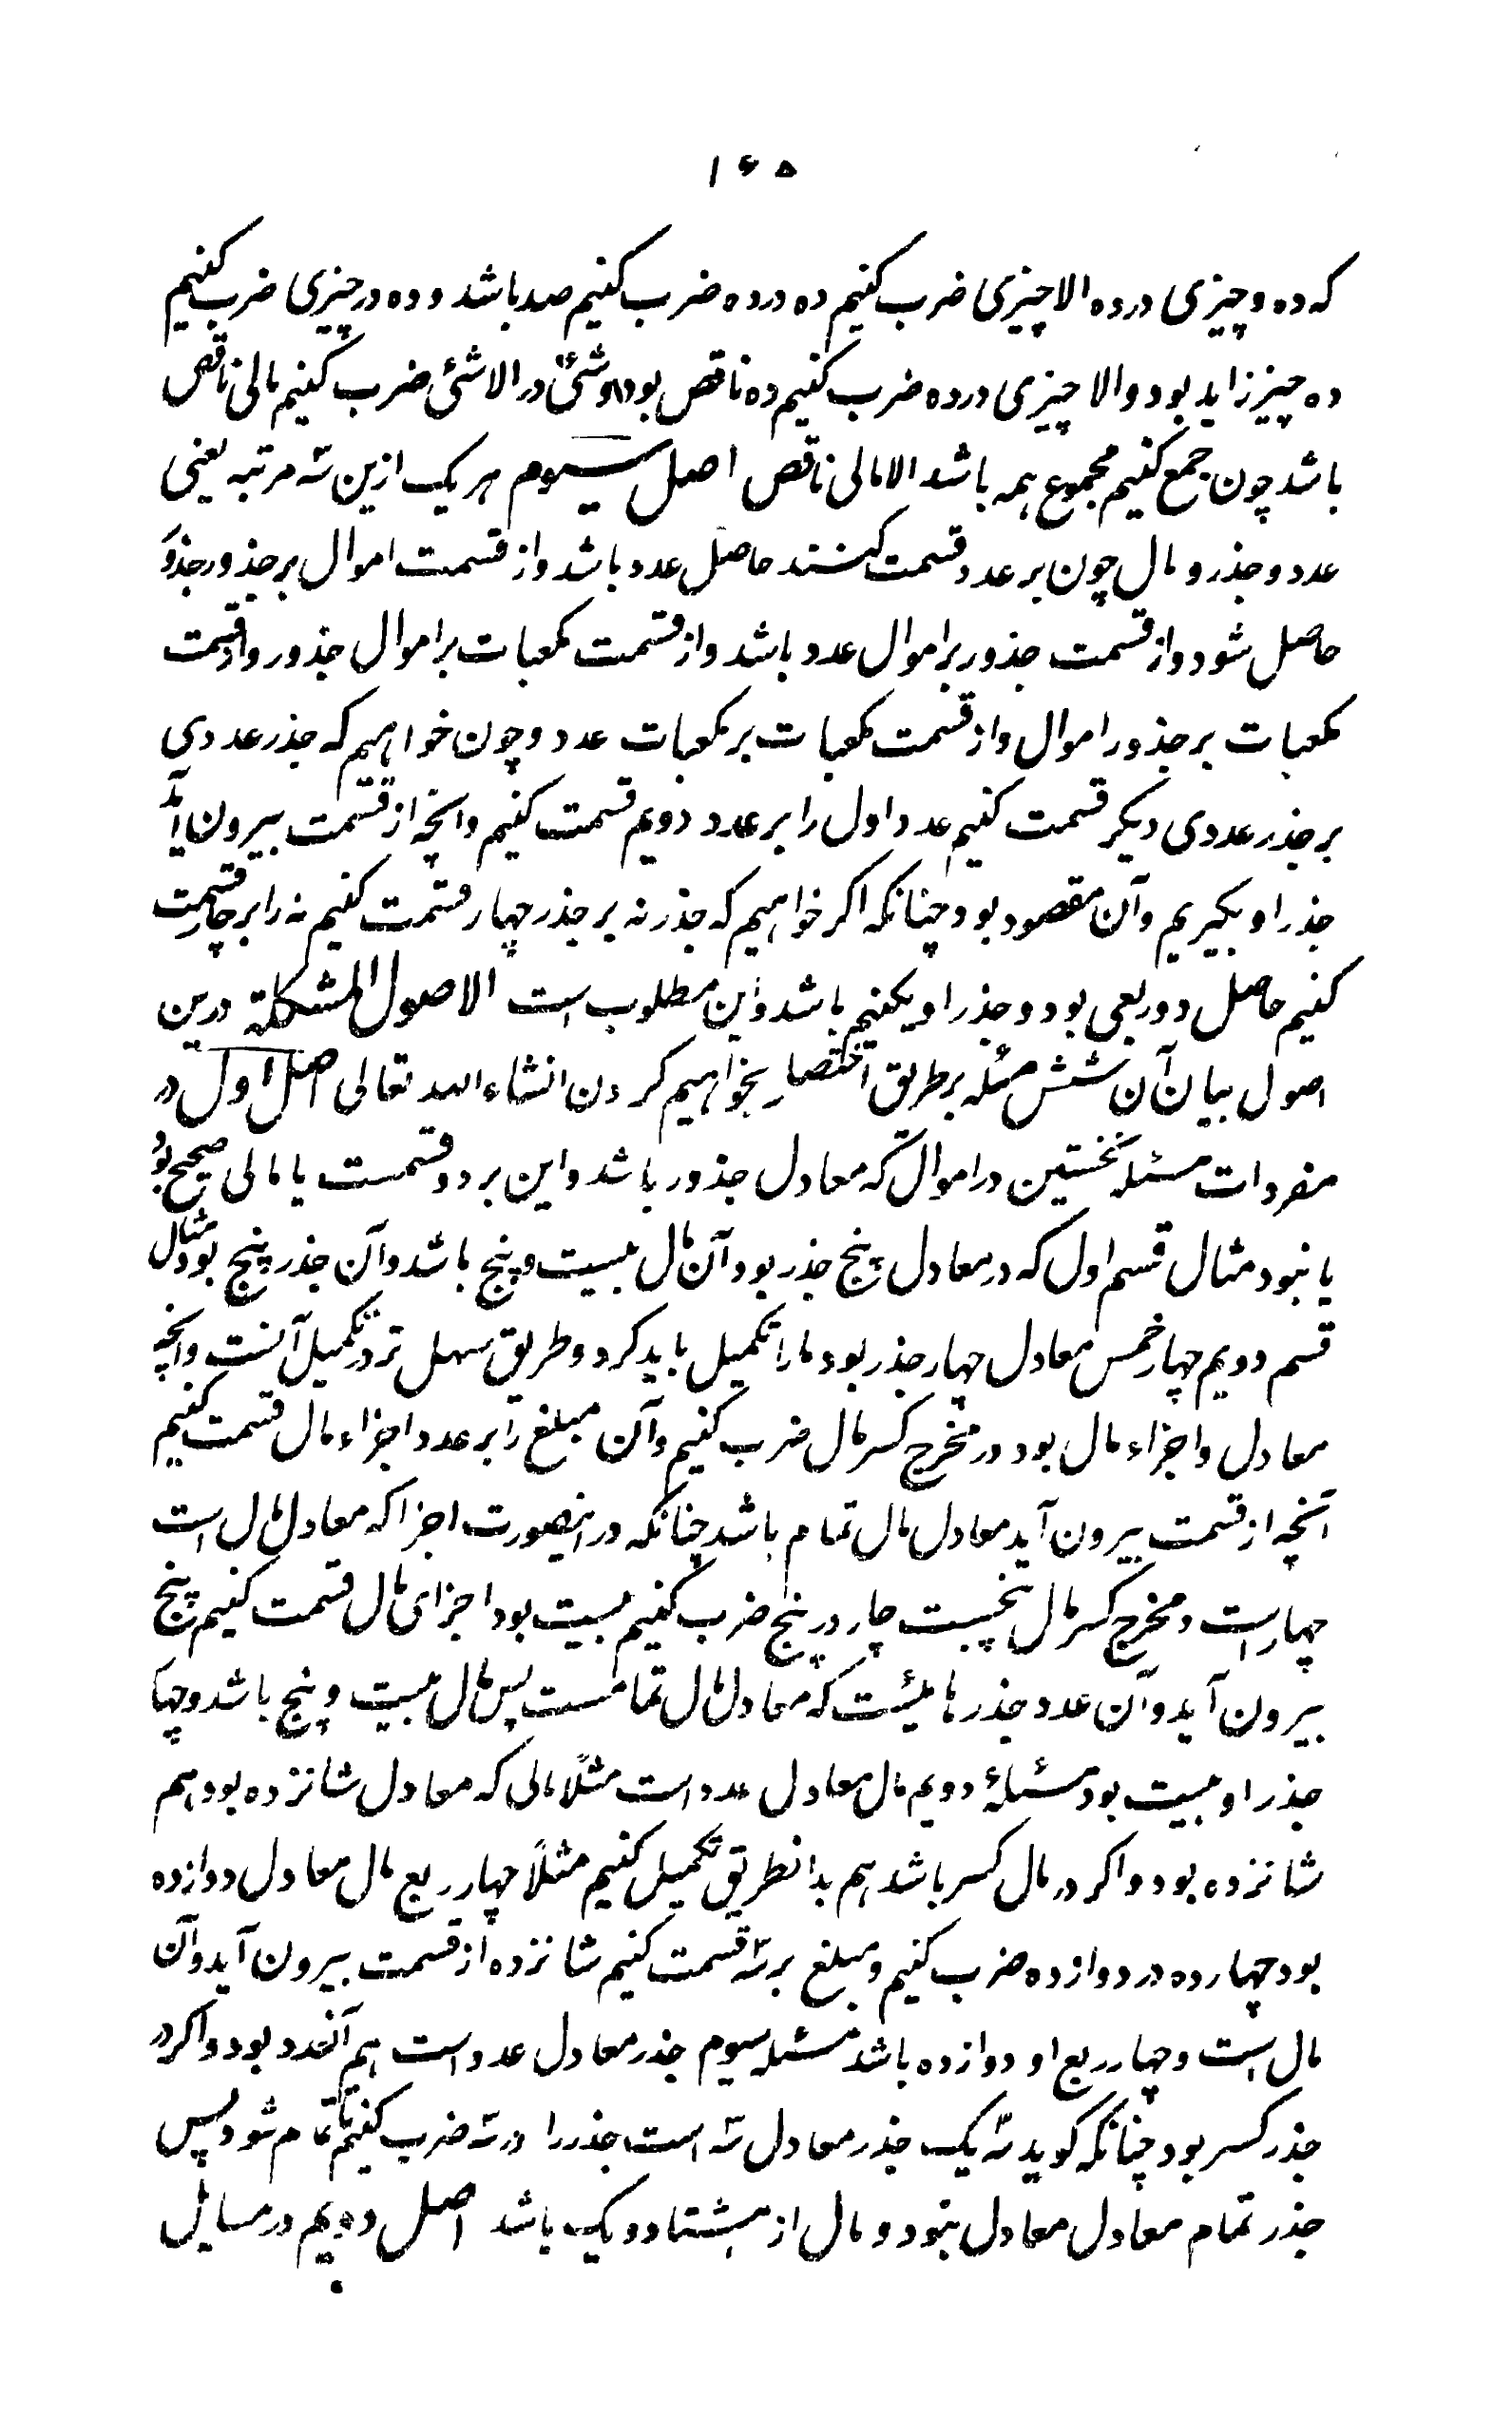 ۱۶۵
که ده و چیزی در ده الا چیزی ضرب کنیم ده در ده ضرب کنیم صد باشد و ده در چیزی ضرب کنیم
ده چیز زاید بود و الا چیزی در ده ضرب کنیم ده ناقص بود و شیئ در الا شئ ضرب کنیم مالی ناقص
باشد چون جمع کنیم مجموع همه باشد الا مالی ناقص اصل سیوم هر یک ازین سه مرتبه یعنی
عدد و جذر و مال چون بر عدد قسمت کنند حاصل عدد باشد و از قسمت اموال بر جذور جذور
حاصل شود و از قسمت جذور بر اموال عدد باشد و از قسمت مکعبات بر اموال جذور و از قسمت
مکعبات بر جذور اموال و از قسمت مکعبات بر مکعبات عدد و چون خواهیم که جذر عددی
بر جذر عددی دیگر قسمت کنیم عدد اول را بر عدد دویم قسمت کنیم و انچه از قسمت بیرون آید
جذر او بگیریم و آن مقصود بود چنانکه اگر خواهیم که جذر نه بر جذر چهار قسمت کنیم نه را بر چار قسمت
کنیم حاصل دو ربعی بود و جذر او یکنیم باشد و این مطلوب است الاصول المشکلة درین
اصول بیان آن شش مسئله بر طریق اختصار بخواهیم کردن انشاء الله تعالی اصل اول در
مفردات مسئله نخستین در اموال که معادل جذور باشد و این بر دو قسمست یا مالی صحیح بود
یا نبود مثال قسم اول که در معادل پنج جذر بود آن مال بیست و پنج باشد و آن جذر پنج بود مثال
قسم دویم چهار خمس معادل چهار جذر بود ما را تکمیل باید کرد و طریق سهل تر در تکمیل آنست و انچه
معادل و اجزاء مال بود در مخرج کسر مال ضرب کنیم و آن مبلغ را بر عدد اجزاء مال قسمت کنیم
آنچه از قسمت بیرون آید معادل مال تمام باشد چنانکه در اینصورت اجزا که معادل مال است
چهار است و مخرج کسر مال پنجست چار در پنج ضرب کنیم بیست بود اجزای مال قسمت کنیم پنج
بیرون آید و آن عدد جذرهائیست که معادل مال تمامست پس مال بیست و پنج باشد و چها
جذر او بیست بود مسئلهٔ دویم مال معادل عدد است مثلاً مالی که معادل شانزده بود هم
شانزده بود و اگر در مال کسر باشد هم بدانطریق تکمیل کنیم مثلاً چهار ربع مال معادل دوازده
بود چهار ده در دوازده ضرب کنیم و مبلغ بر سه قسمت کنیم شانزده از قسمت بیرون آید و آن
مال است و چهار ربع او دوازده باشد مسئله سیوم جذر معادل عدد است هم آنعدد بود و اگر در
جذر کسر بود چنانکه گوید سه یک جذر معادل سه است جذر را در سه ضرب کنیم تا تمام شود پس
جذر تمام معادل معادل نبود و مال از هشتاد و یک باشد اصل دویم در مسایل